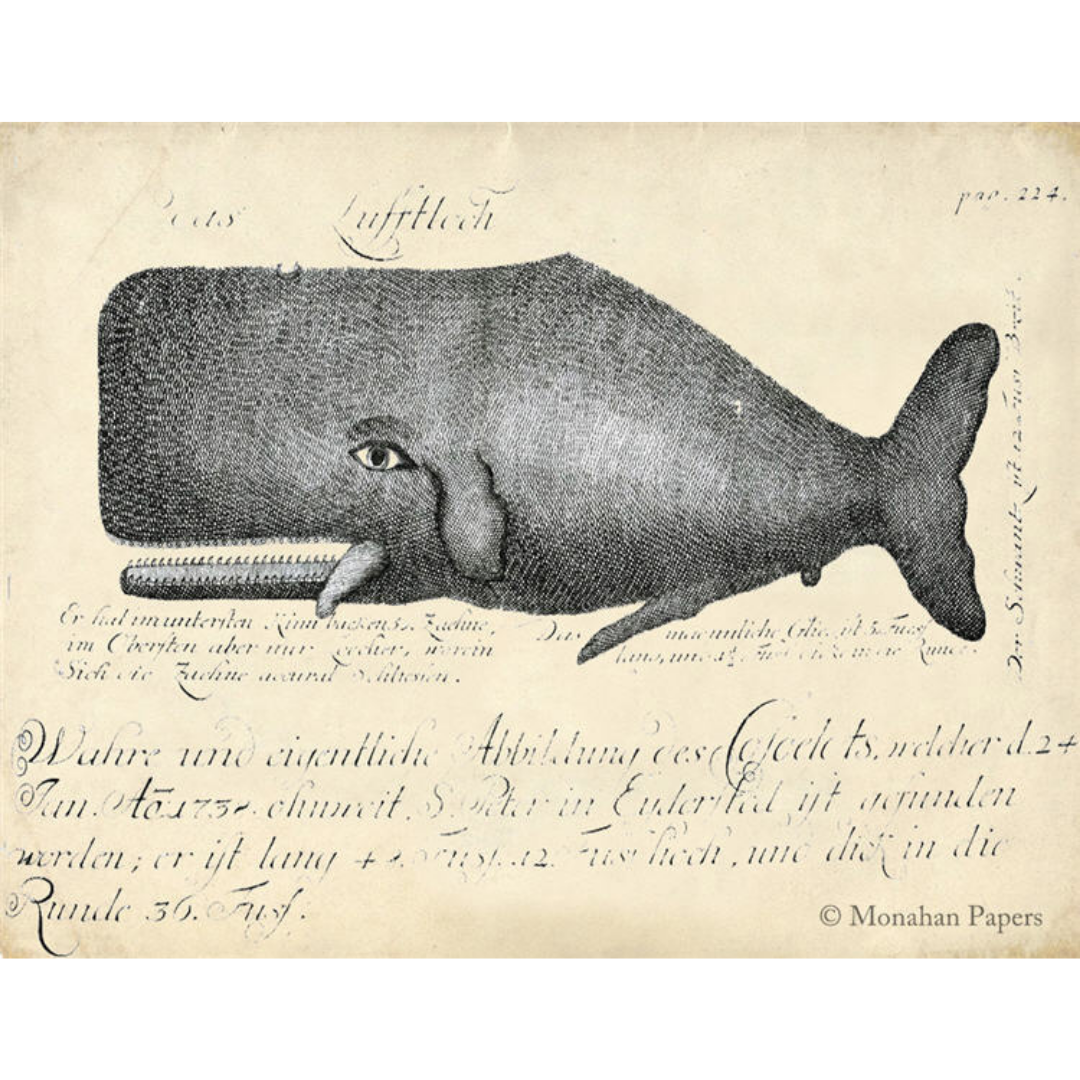 Das Lufftloch
pag. 224.
Er hat im untersten Kinn backen 52. Zaehne,
im Obersten aber nur Loecher, worein
Sich die Zaehne accurat Schliessen.
Das maennliche Glied ist 5. Fuess
lang, und in die Runde.
Der Schwantz ist 12. Fuss Breit.
Wahre und eigentliche Abbildung des welcher d. 24
Jan. Aō. 173 ohnweit S. Peter in Eydersted ist gefunden
worden; er ist lang 48. Fuss. 12. Fuss hoch, und dick in die
Runde 36. Fuss.
© Monahan Papers